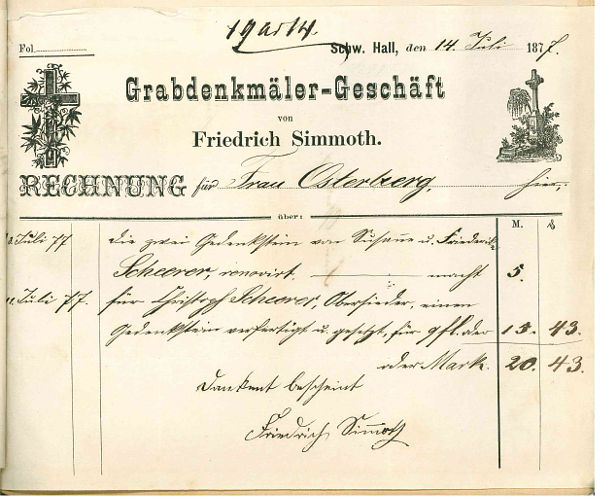 19 ad 14.
Fol.
Schw. Hall, den 14. Juli 1877.
Grabdenkmäler-Geschäft
von
Friedrich Simmoth.
RECHNUNG für Frau Osterberg, hier.
über:
M. ₰
Juli 77 die zwei Gedenkstein von Susane u. Friederik
Scheerer, renovirt. macht 5.
Juli 77. für Christoph Scheerer, Obersieder, einen
Gedenkstein verfertigt u. gesetzt, für 9 fl. oder 15. 43.
oder Mark. 20. 43.
Dankent bescheint
Friedrich Simmoth